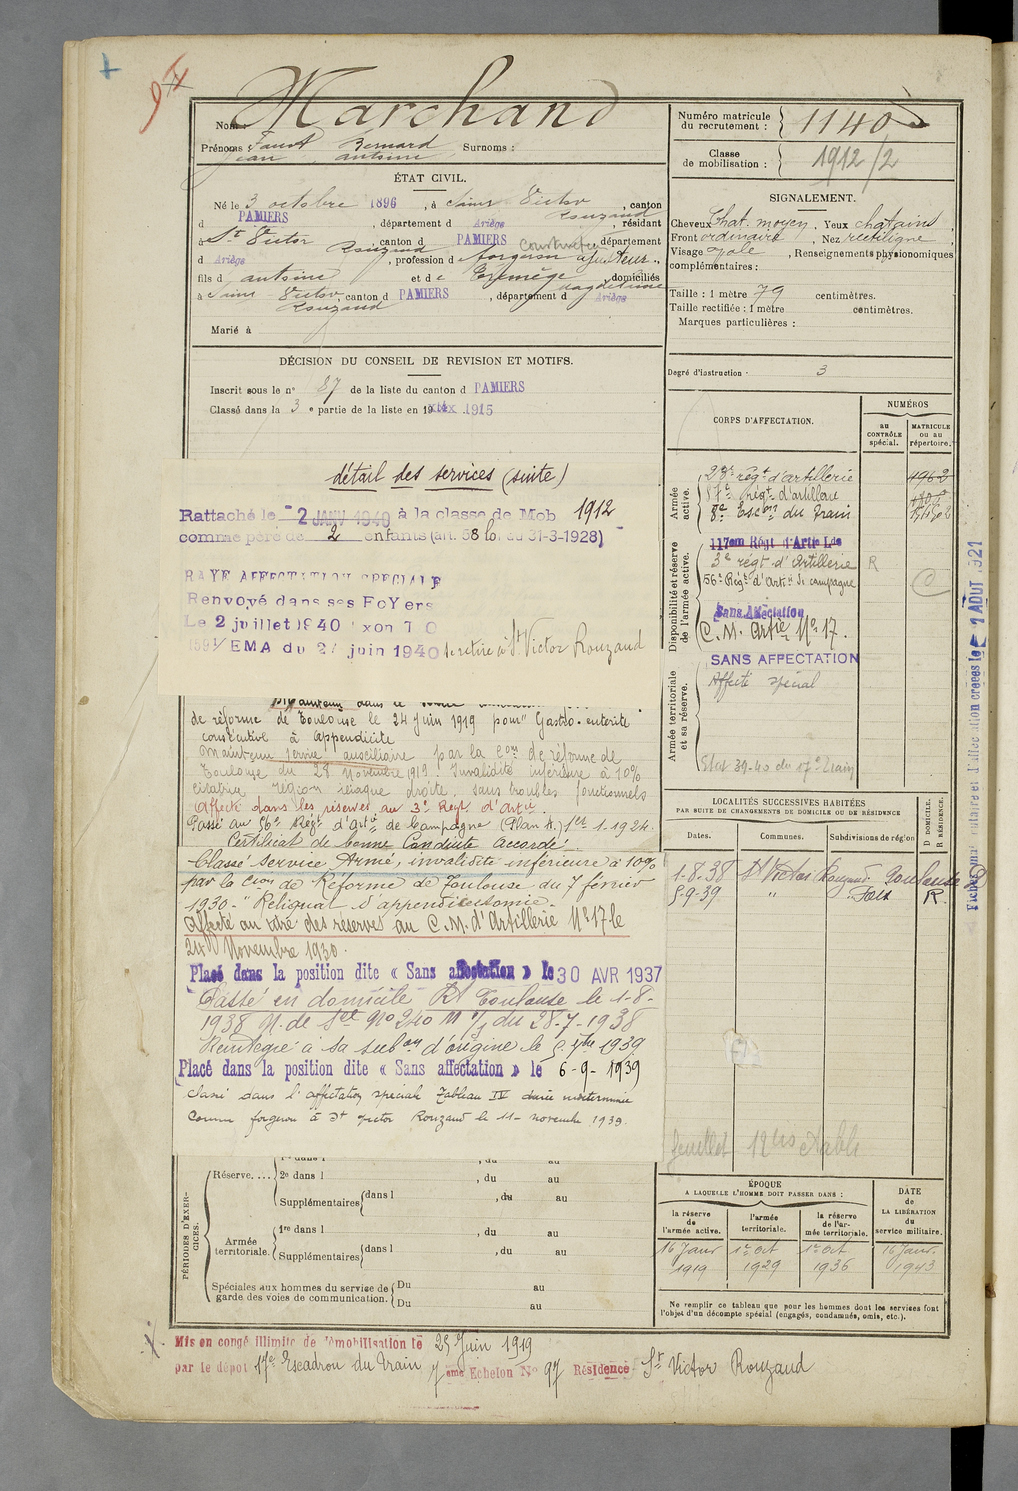 Marchand
Nom :
Prénoms : Faust Bernard Surnoms :
Jean Antoine
ÉTAT CIVIL.
Né le 3 octobre 1896, à Saint Victor, canton
Rouzaud
d PAMIERS, département d Ariège, résidant
à St Victor Rouzaud canton d PAMIERS département
Constructeur
d Ariège, profession de forgeron ajusteur,
fils d'antoine et de , domiciliés
Magdelaine
à Saint Victor, canton d PAMIERS, département d Ariège
Rouzaud
Marié à
DÉCISION DU CONSEIL DE REVISION ET MOTIFS.
Inscrit sous le n° 87 de la liste du canton d PAMIERS
Classé dans la 3e partie de la liste en 1915
détail des services (suite)
Rattaché le -2 JANV 1940 à la classe de Mob 1912
comme père de 2 enfants (art. 58 loi du 31-3-1928)
RAYE AFFECTATION SPECIALE
Renvoyé dans ses FoYers
Le 2 juillet 1940
EMA du 27 juin 1940 se retire à St Victor Rouzaud
de réforme de Toulouse le 24 Juin 1919 pour "Gastro-entérite
consécutive à appendicite
Maintenu service auxiliaire par la Com de réforme de
Toulouse du 28 Novembre 1919. Invalidité inférieure à 10%
cicatrice région iliaque droite, sans troubles fonctionnels
Affecté dans les réserves au 3e Régt d'Artie
Passé au 56e Régt d'Artie de Campagne (Plan A) 1er-1-1924.
Certificat de bonne Conduite accordé.
Classé Service Armé, invalidité inférieure à 10%
par la Cion de Réforme de Toulouse du 7 février
1930 - "Reliquat d'appendicectomie.
Affecté au titre des réserves au C.M. d'Artillerie N° 17 le
24 Novembre 1930.
Placé dans la position dite « Sans affectation » le 30 AVR 1937
Passé en domicile Rt Toulouse le 1-8-
1938 N. de Sce No 240 M /1 du 28-7-1938
Réintégré à sa subon d'origine le 5 7bre 1939
Placé dans la position dite « Sans affectation » le 6-9-1939
Classé dans l'affectation spéciale Tableau IV durée indéterminée
Comme forgeron à St Victor Rouzaud le 11 novembre 1939.
PÉRIODES D'EXERCICES.
Réserve....
1re dans l , du au
2e dans l , du au
Supplémentaires dans l , du au
Armée territoriale.
1re dans l , du au
Supplémentaires dans l , du au
Spéciales aux hommes du service de garde des voies de communication.
Du au
Du au
Mis en congé illimité de démobilisation le 25 Juin 1919
par le dépôt 17e Escadron du Train 7ème Echelon N° 97 Résidence St Victor Rouzaud
Numéro matricule
du recrutement : 1140
Classe
de mobilisation : 1912/2
SIGNALEMENT.
Cheveux Chat. moyen, Yeux chatains
Front ordinaire, Nez rectiligne,
Visage ovale, Renseignements physionomiques
complémentaires :
Taille : 1 mètre 79 centimètres.
Taille rectifiée : 1 mètre centimètres.
Marques particulières :
Degré d'instruction : 3
CORPS D'AFFECTATION.
NUMÉROS
au CONTRÔLE spécial.
MATRICULE ou au répertoire.
Armée active.
23e régt d'artillerie 1962
57e régt d'artillerie
8e Escon du Train
Disponibilité et réserve de l'armée active.
117em Régt d'Artie Lde
3e régt d'Artillerie R
56e Régt d'Artie de campagne
Sans Affectation
C. M. Artie N° 17.
Armée territoriale et sa réserve.
SANS AFFECTATION
Affecté spécial
Stat 39-40 du 17e Train
Fiches matriculaire et d'affectation créées le 1 AOUT 1921
LOCALITÉS SUCCESSIVES HABITÉES
PAR SUITE DE CHANGEMENTS DE DOMICILE OU DE RÉSIDENCE
Dates. Communes. Subdivisions de région D. DOMICILE. R. RÉSIDENCE.
1-8-38 St Victor Rouzaud Toulouse D
5-9-39 " " Foix R.
feuillet 12 bis établi
ÉPOQUE
A LAQUELLE L'HOMME DOIT PASSER DANS :
la réserve de l'armée active.
l'armée territoriale.
la réserve de l'armée territoriale.
DATE de LA LIBÉRATION du service militaire.
16 Janv 1919
1er Oct 1929
1er Oct 1936
16 Janv. 1943
Ne remplir ce tableau que pour les hommes dont les services font
l'objet d'un décompte spécial (engagés, condamnés, omis, etc.).